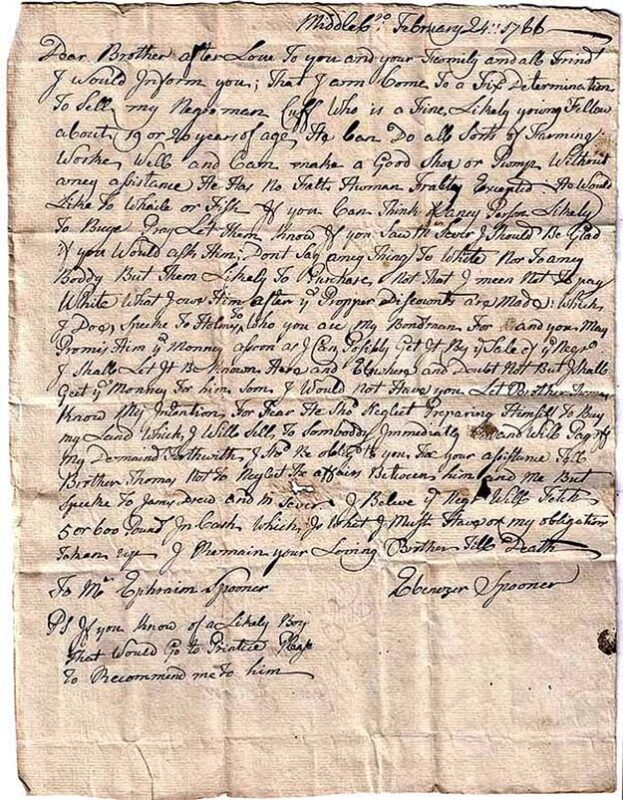 Middlebro. February 24th: 1766
Dear Brother after Love To you and your Faemily and all Frind
I Would Inform you; That I am Come To a Fix Determination
To Sell my Negroman Cuff Who is a Fine Likely young Fellow
about 19 or 20 years of age, He Can Do all Sorts of Farming
Worke Well and Caen make a Good Shoe or Pump Without
aney assistance He Has No Falt Human Frality Excepted He Would
Like To Whaile or Fish If you Can Think of aney Person Likely
To Buye Pray Let Them Know If you Saw Mr Sever I Should Be Glad
if you Would ask Him, Don't Say aney Thing To White Nor To aney
Boddy But Them Likely To Purchase Not That I meen Not To pay
White What I owe Him after ye Propper Discounts are Made: Which
I Do Speeke To Who you are My Bondman For and you May
Promis Him ye Monney assoon as I Can Posibly Get It By ye Sale of ye Negro
I Shall Let It Be Known Here and Elswhere and Doubt Not But I shall
Geet ye Monney For him Soon I Would not Have you Let Brother Thomas
Know My Intention For Fear He Shd Neglect Preparing Himself To Buy
my Land Which I Will Sell To Sombody Immediatly and Will Pay off
My Demaind Forthwith I Shd Be oblig'd to you For your assistance Tell
Brother Thomas Not To Neglect The affairs Between him and Me But
Speeke To James and Mr Sever I Beleve ye Negro Will Fetch
5 or 600 Pound In Cash Which Is What I Must Have or my obligation
Taken up I Remain your Loving Brother Till Death
To Mr Ephraim Spooner Ebenezer Spooner
PS If you Know of a Likely Boy
That Would Go to Printice Please
To Recommend me to him